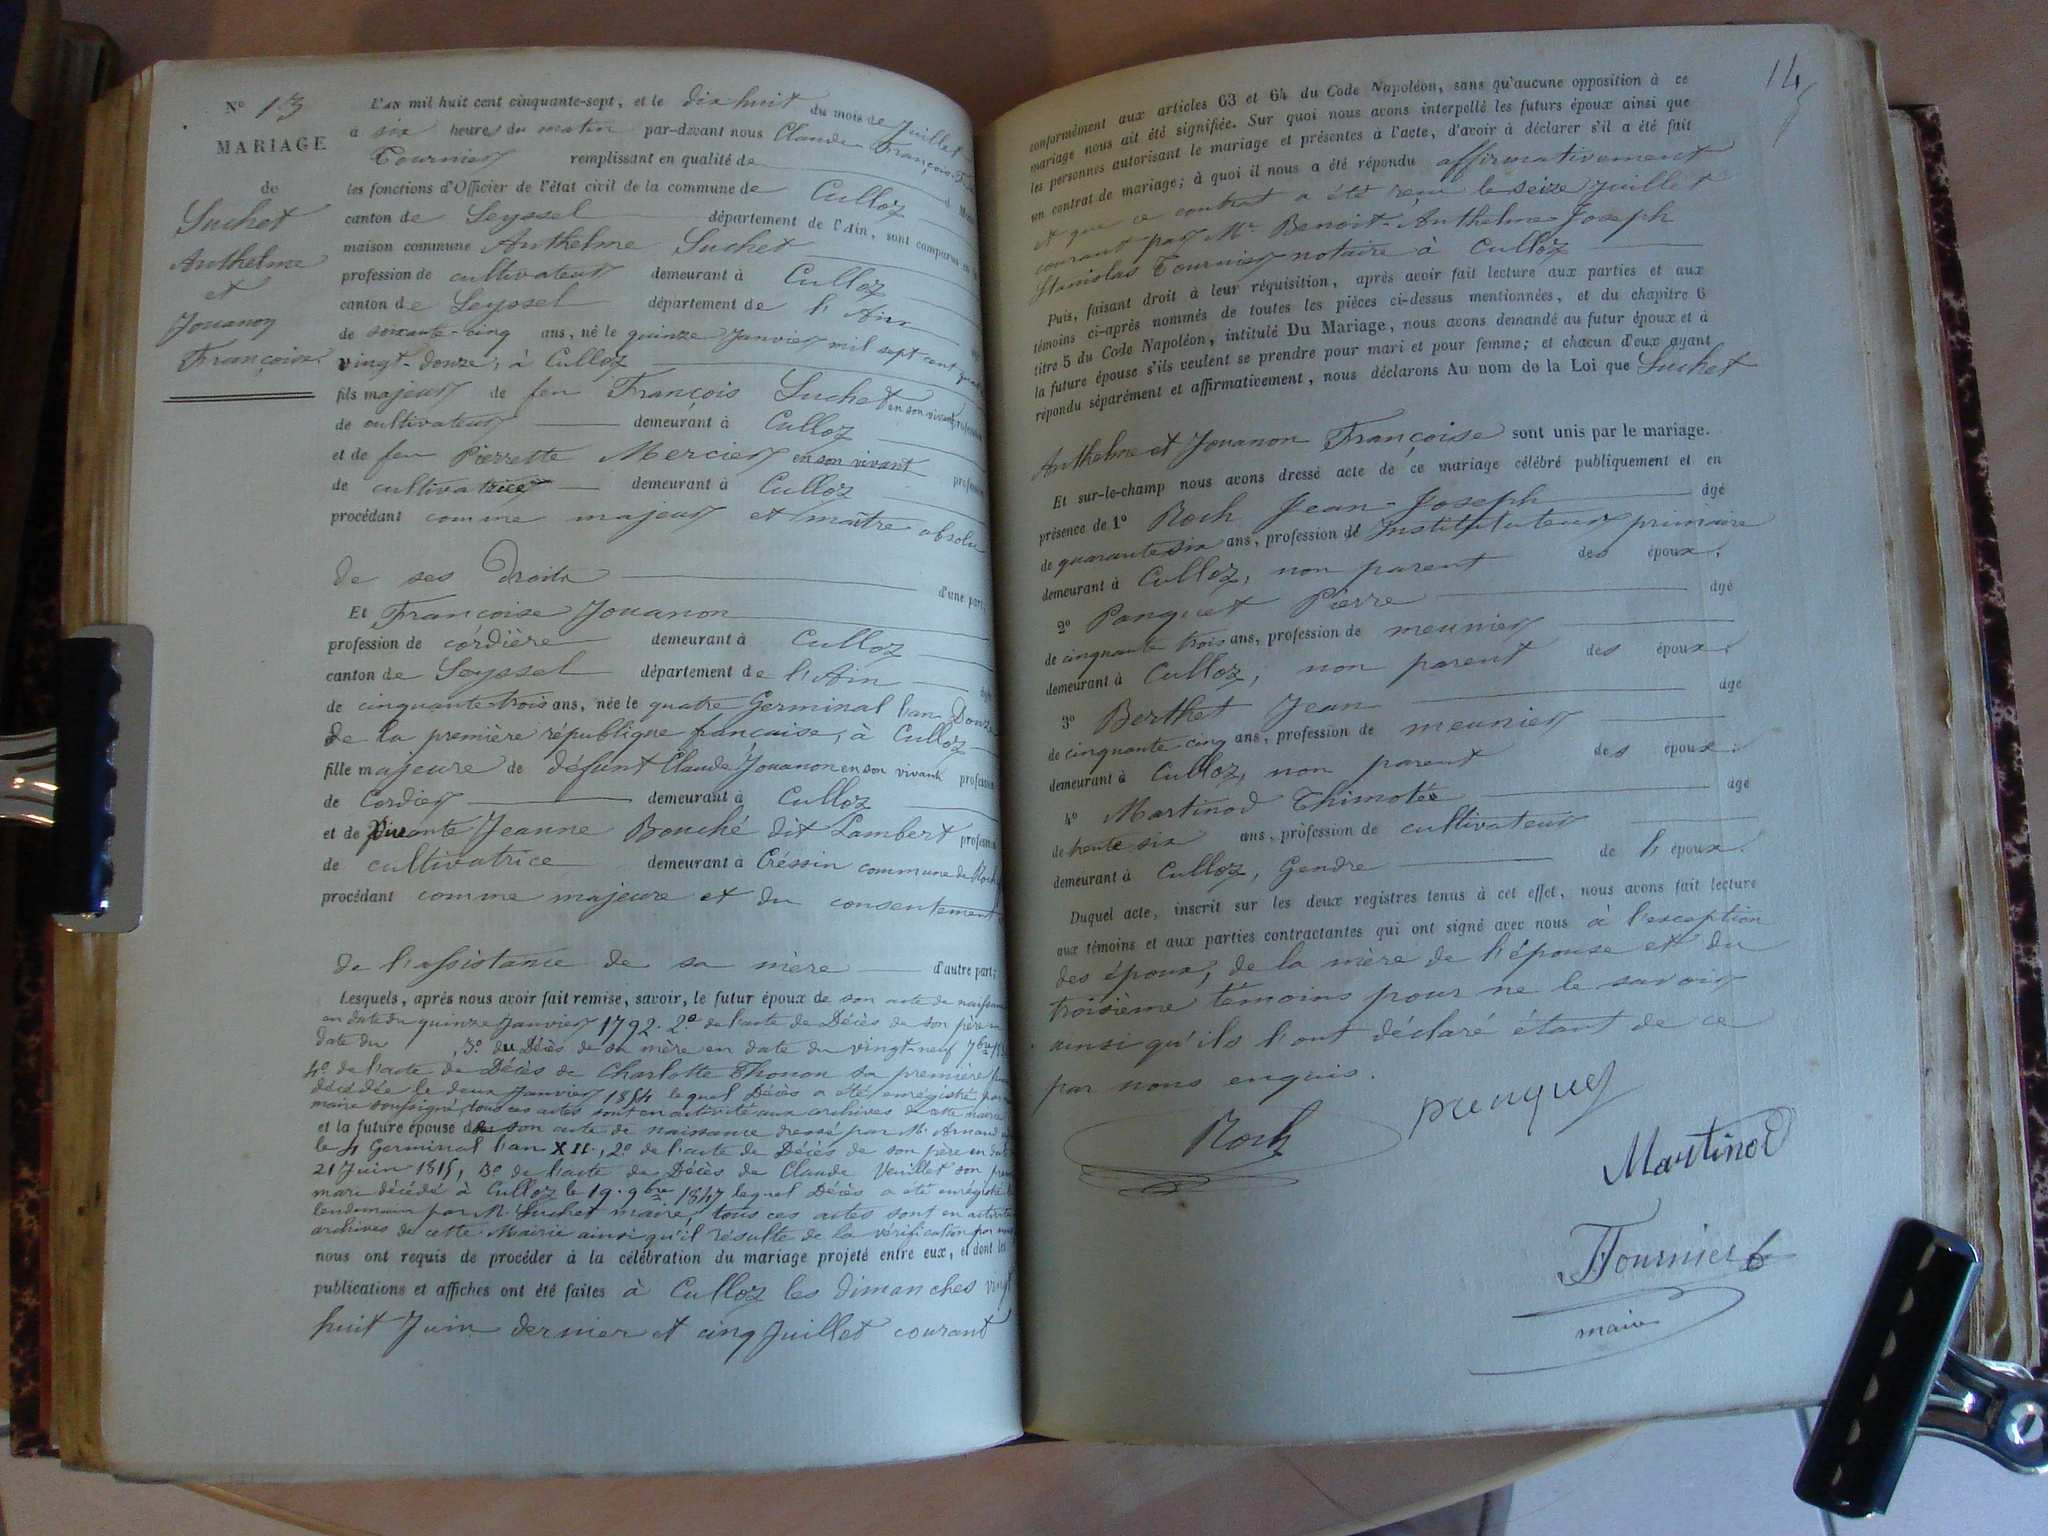 N° 13
MARIAGE
de
Suchet
Anthelme
et
Jouanon
Françoise
L'AN mil huit cent cinquante-sept, et le dix huit du mois de Juillet
à six heures du matin par-devant nous Claude François
Tournier remplissant en qualité de
les fonctions d'Officier de l'état civil de la commune de Culloz
canton de Seyssel département de l'Ain, sont comparus en
maison commune Anthelme Suchet
profession de cultivateur demeurant à Culloz
canton de Seyssel département de l'Ain
de soixante-cinq ans, né le quinze Janvier mil sept cent
vingt-douze, à Culloz
fils majeur de feu François Suchet en son vivant profession
de cultivateur demeurant à Culloz
et de feu Pierrette Mercier en son vivant profession
de cultivatrice demeurant à Culloz
procédant comme majeur et maître absolu
de ses droits d'une part;
Et Françoise Jouanon
profession de cordière demeurant à Culloz
canton de Seyssel département de l'Ain
de cinquante trois ans, née le quatre Germinal l'an Douze
de la première république française, à Culloz
fille majeure de défunt Claude Jouanon en son vivant profession
de Cordier demeurant à Culloz
et de vivante Jeanne Bouché dit Lambert profession
de cultivatrice demeurant à Créssin commune de
procédant comme majeure et du consentement
de l'assistance de sa mère d'autre part;
Lesquels, après nous avoir fait remise, savoir, le futur époux de son acte de naissance
en date du quinze Janvier 1792. 2° de l'acte de Décès de son père en
date du , 3° du Décès de sa mère en date du vingt-neuf 7bre
4° de l'acte de Décès de Charlotte Thonon sa première
décédée le deux Janvier 1854 lequel Décès a été enrégistré par
maire soussigné, tous ces actes sont en activité aux archives de cette mairie
et la future épouse de son acte de naissance dressé par M. Arnaud
le 4 Germinal l'an XII, 2° de l'acte de Décès de son père en date
21 Juin 1815, 3° de l'acte de Décès de Claude Veuillet son
mari décédé à Culloz le 19 9bre 1847 lequel Décès a été enrégistré
lendemain par M. Suchet maire, tous ces actes sont en activité
archives de cette Mairie ainsi qu'il résulte de la vérification par
nous ont requis de procéder à la célébration du mariage projeté entre eux, et dont les
publications et affiches ont été faites à Culloz les dimanches vingt
huit Juin dernier et cinq Juillet courant
14
conformément aux articles 63 et 64 du Code Napoléon, sans qu'aucune opposition à ce
mariage nous ait été signifiée. Sur quoi nous avons interpellé les futurs époux ainsi que
les personnes autorisant le mariage et présentes à l'acte, d'avoir à déclarer s'il a été fait
un contrat de mariage; à quoi il nous a été répondu affirmativement
et que ce contrat a été reçu le seize Juillet
courant par Me Benoit-Anthelme Joseph
Stanislas Tournier notaire à Culloz
Puis, faisant droit à leur réquisition, après avoir fait lecture aux parties et aux
témoins ci-après nommés de toutes les pièces ci-dessus mentionnées, et du chapitre 6
titre 5 du Code Napoléon, intitulé Du Mariage, nous avons demandé au futur époux et à
la future épouse s'ils veulent se prendre pour mari et pour femme; et chacun d'eux ayant
répondu séparément et affirmativement, nous déclarons Au nom de la Loi que Suchet
Anthelme et Jouanon Françoise sont unis par le mariage.
Et sur-le-champ nous avons dressé acte de ce mariage célébré publiquement et en
présence de 1° Roch Jean-Joseph âgé
de quarante six ans, profession de Instituteur primaire
demeurant à Culloz, non parent des époux.
2° Panquet Pierre âgé
de cinquante trois ans, profession de meunier
demeurant à Culloz, non parent des époux.
3° Berthet Jean âgé
de cinquante cinq ans, profession de meunier
demeurant à Culloz, non parent des époux.
4° Martinod Thimotée âgé
de trente six ans, profession de cultivateur
demeurant à Culloz, Gendre de l'époux.
Duquel acte, inscrit sur les deux registres tenus à cet effet, nous avons fait lecture
aux témoins et aux parties contractantes qui ont signé avec nous à l'exception
des époux, de la mère de l'épouse et du
troisième témoins pour ne le savoir
ainsi qu'ils l'ont déclaré étant de ce
par nous enquis.
Roch
Martinod
Tournier
maire